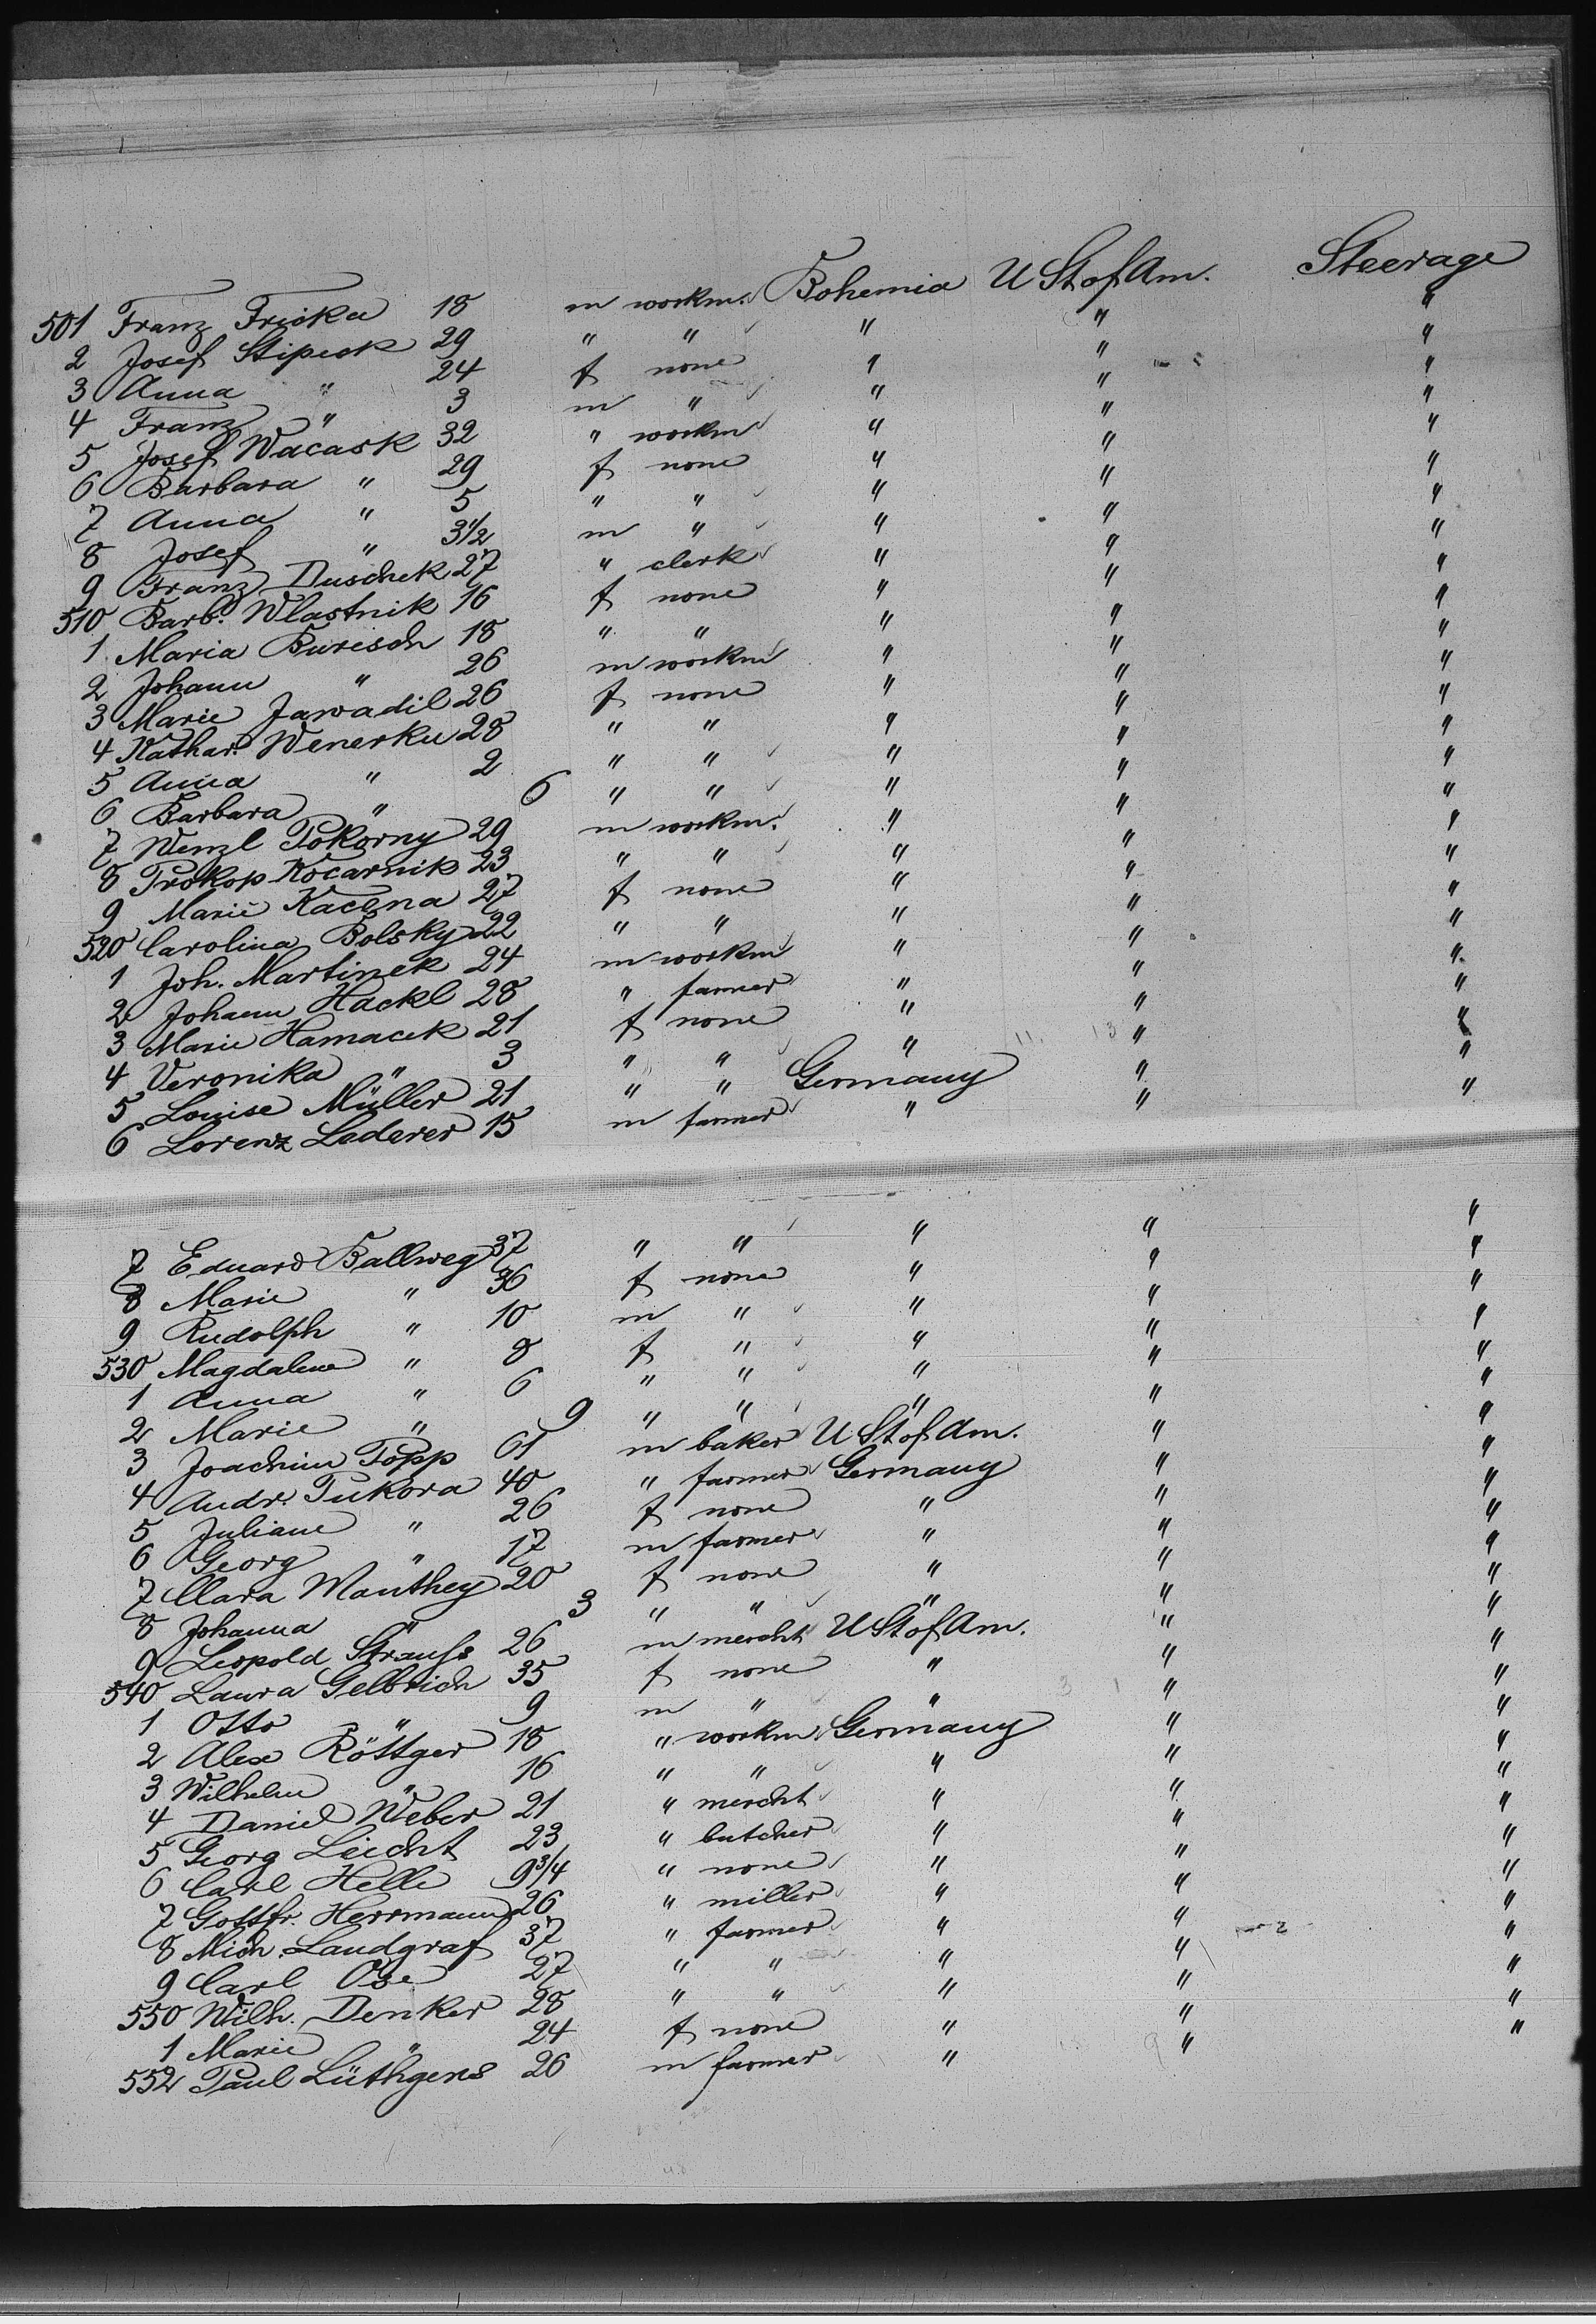 501 Franz Fricka 18 m workm. Bohemia U St of Am. Steerage
2 Josef Stipeck 29 " " " " "
3 Anna " 24 f none " " "
4 Franz " 3 m " " " "
5 Josef Wacask 32 " workm " " "
6 Barbara " 29 f none " " "
7 Anna " 5 " " " " "
8 Josef " 3 1/2 m " " " "
9 Franz Duschek 27 " clerk " " "
510 Barb. Wlastnik 16 f none " " "
1 Maria Burisch 18 " " " " "
2 Johann " 26 m workm " " "
3 Marie Jawadil 26 f none " " "
4 Kathar. Wenerku 28 " " " " "
5 Anna " 2 " " " " "
6 Barbara " 6 " " " " "
7 Wenzl Pokorny 29 m workm. " " "
8 Prokop Kocarnik 23 " " " " "
9 Marie Kacena 27 f none " " "
520 Carolina Bolsky 22 " " " " "
1 Joh. Martinek 24 m workm " " "
2 Johann Hackl 28 " farmer " " "
3 Marie Hamacek 21 f none " " "
4 Veronika " 3 " " " " "
5 Louise Müller 21 " " Germany " "
6 Lorenz Lederer 15 m farmer " " "
7 Eduard Ballweg 37 " " " " "
8 Marie " 36 f none " " "
9 Rudolph " 10 m " " " "
530 Magdalene " 8 f " " " "
1 Anna " 6 " " " " "
2 Marie " 9 " " " " "
3 Joachim Popp 61 m baker U St of Am. " "
4 Andr. Pukora 40 " farmer Germany " "
5 Juliane " 26 f none " " "
6 Georg " 17 m farmer " " "
7 Clara Manthey 20 f none " " "
8 Johanna " 3 " " " " "
9 Leopold Strauss 26 m mercht U St of Am. " "
540 Laura Gelbrich 35 f none " " "
1 Otto " 9 m " " " "
2 Alex Röttger 18 " workm Germany " "
3 Wilhelm " 16 " " " " "
4 Daniel Weber 21 " mercht " " "
5 Georg Leicht 23 " butcher " " "
6 Carl Helle 9 3/4 " none " " "
7 Gottfr. Herrmann 26 " miller " " "
8 Mich. Landgraf 37 " farmer " " "
9 Carl 27 " " " " "
550 Wilh. Denker 28 " " " " "
1 Marie " 24 f none " " "
552 Paul Lüthgens 26 m farmer " " "